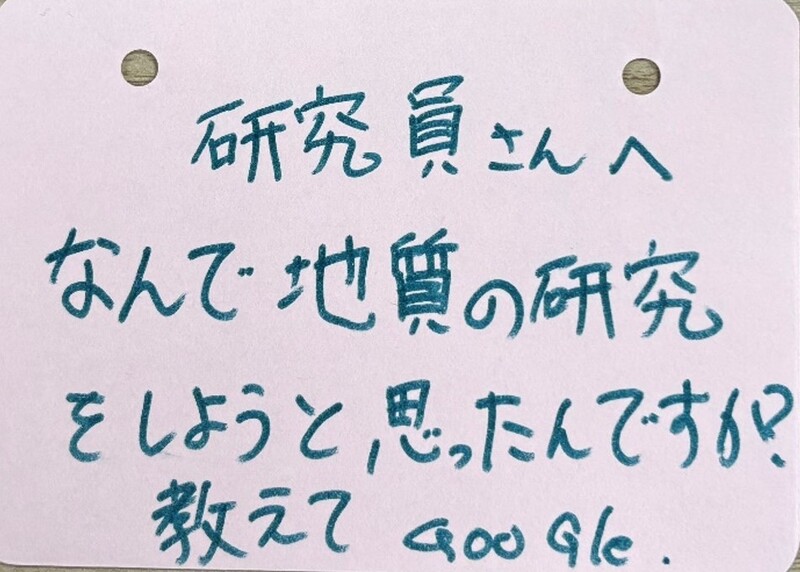 研究員さんへ
なんで地質の研究
をしようと思ったんですか?
教えて GooGle.